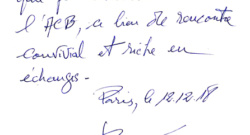 l'ACB, ce lieu de rencontre
convivial et riche en
échanges.
Paris, le 12.12.18